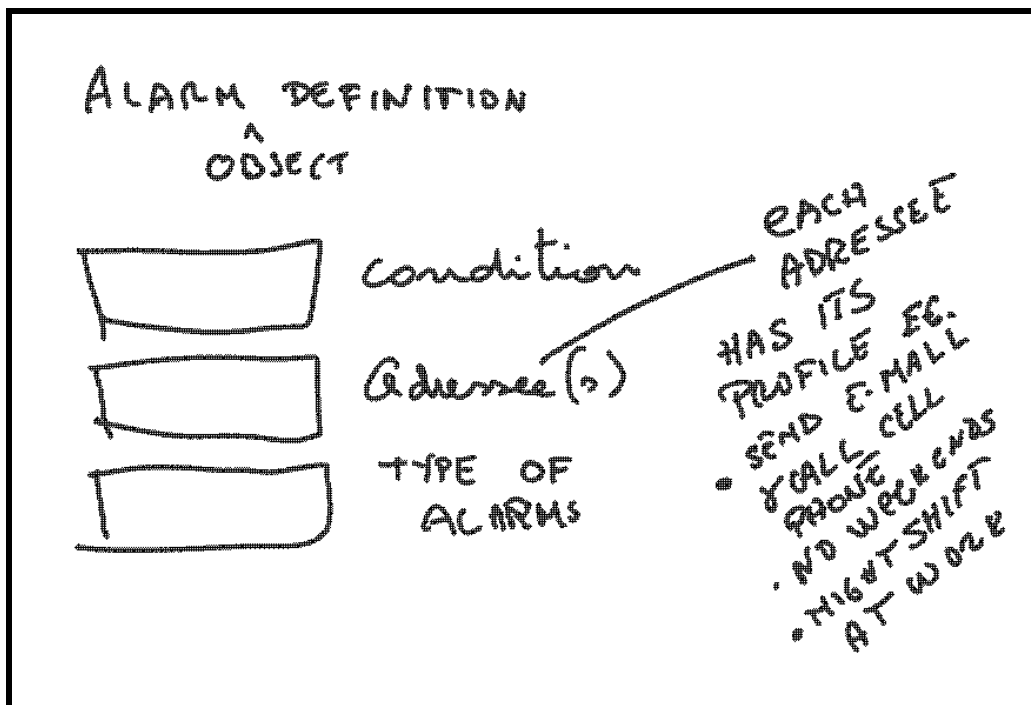 ALARM DEFINITION
^
OBJECT
condition
Adressee(s)
TYPE OF
ALARMS
EACH
ADRESSEE
HAS ITS
PROFILE EG.
• SEND E-MAIL
CALL CELL
PHONE
• NO WEEKENDS
• NIGHT SHIFT
AT WORK